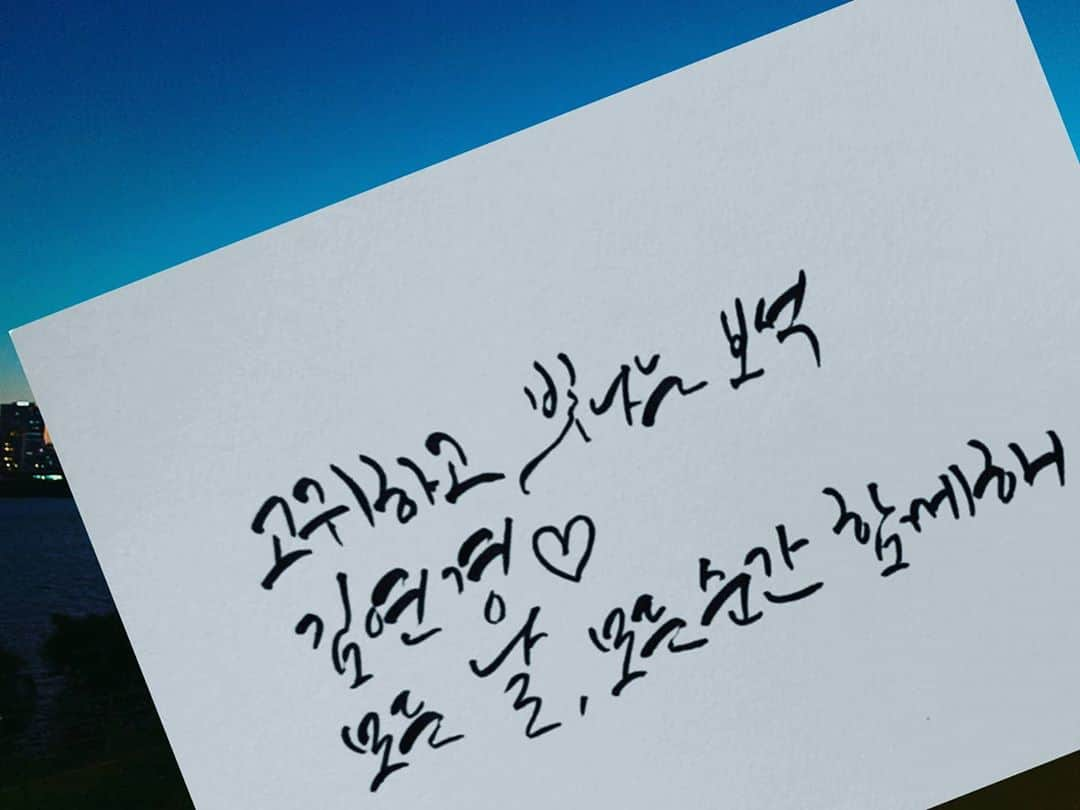 고귀하고 빛나는 보석
김연경♡
모든 날, 모든순간 함께해